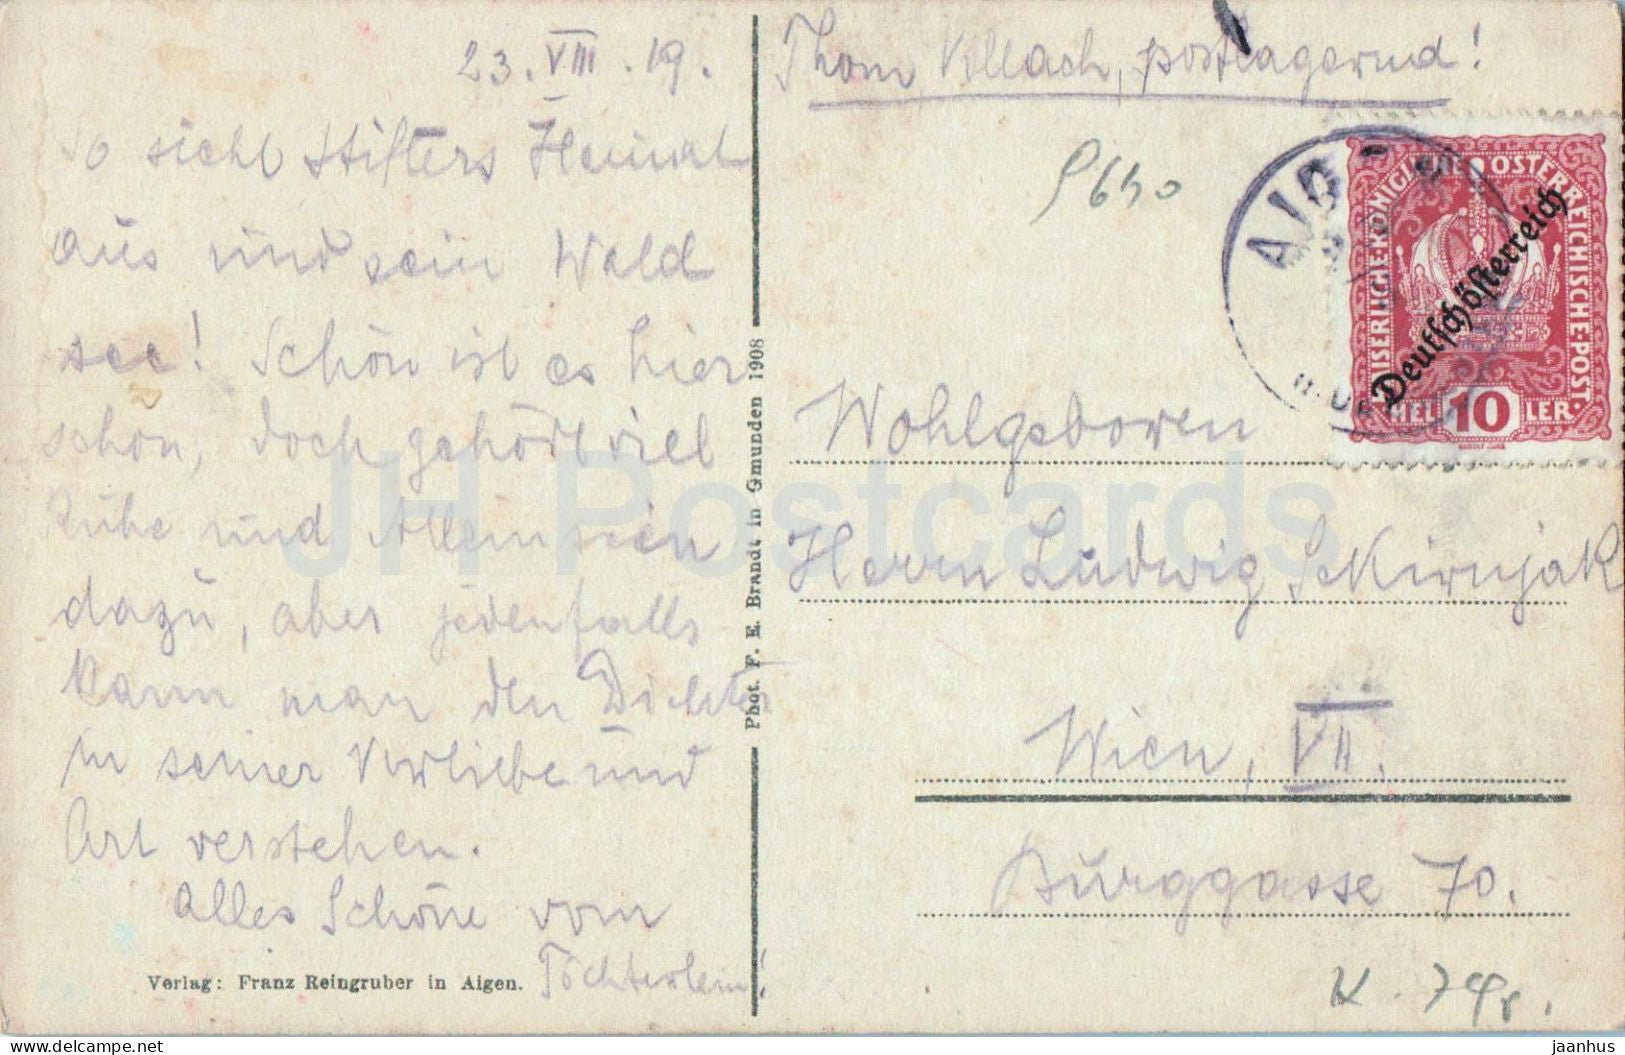 23. VIII. 19.
So sieht Stifters Heimat
aus und sein Wald
see! Schön ist es hier
schon, doch gehört viel
Ruhe und Alleinsein
dazu, aber jedenfalls
kann man den Dichter
in seiner Vorliebe und
Art verstehen.
Alles Schöne vom
Töchterlein!
Verlag: Franz Reingruber in Aigen.
Phot. F. E. Brandt in Gmunden 1908
Thom Villach, postlagernd!
AIG
KAISERLICHE KÖNIGLICHE ÖSTERREICHISCHE POST
Deutschösterreich
HELLER
10
Wohlgeboren
Herrn Ludwig Skirnjak
Wien, VII.
Burggasse 70.
JH Postcards
delcampe.net
jaanhus